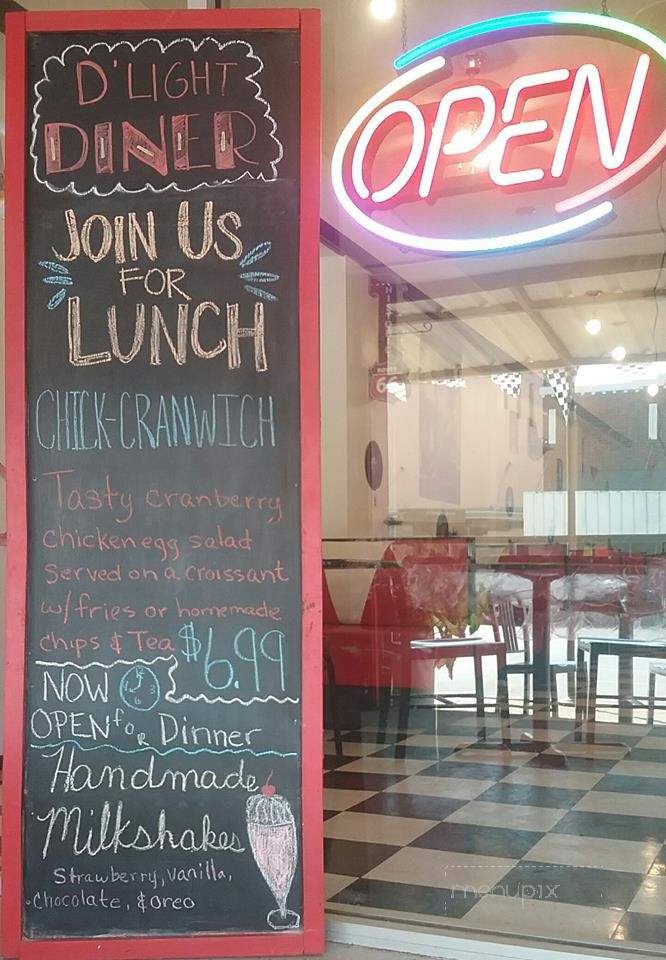 D'LIGHT
DINER
JOIN US
FOR
LUNCH
CHICK-CRANWICH
Tasty cranberry
chicken egg salad
Served on a croissant
w/fries or homemade
chips & Tea $6.99
NOW
OPEN for Dinner
Handmade
Milkshakes
Strawberry, vanilla,
chocolate, & oreo
OPEN
HISTORIC
ROUTE
66
menupix